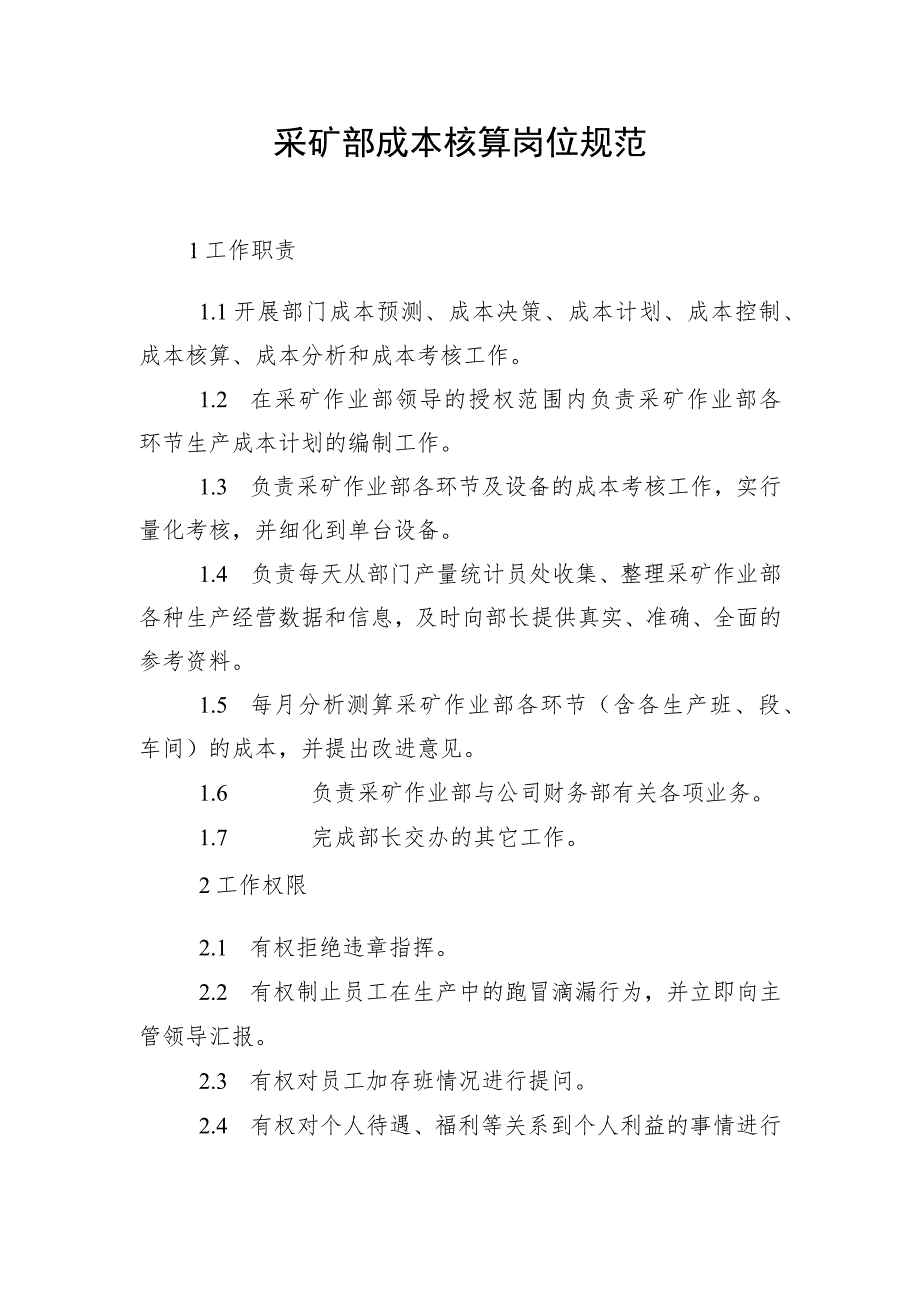 采矿部成本核算岗位规范
1工作职责
1.1开展部门成本预测、成本决策、成本计划、成本控制、
成本核算、成本分析和成本考核工作。
1.2 在采矿作业部领导的授权范围内负责采矿作业部各
环节生产成本计划的编制工作。
1.3 负责采矿作业部各环节及设备的成本考核工作，实行
量化考核，并细化到单台设备。
1.4 负责每天从部门产量统计员处收集、整理采矿作业部
各种生产经营数据和信息，及时向部长提供真实、准确、全面的
参考资料。
1.5 每月分析测算采矿作业部各环节（含各生产班、段、
车间）的成本，并提出改进意见。
1.6 负责采矿作业部与公司财务部有关各项业务。
1.7 完成部长交办的其它工作。
2工作权限
2.1 有权拒绝违章指挥。
2.2 有权制止员工在生产中的跑冒滴漏行为，并立即向主
管领导汇报。
2.3 有权对员工加存班情况进行提问。
2.4 有权对个人待遇、福利等关系到个人利益的事情进行